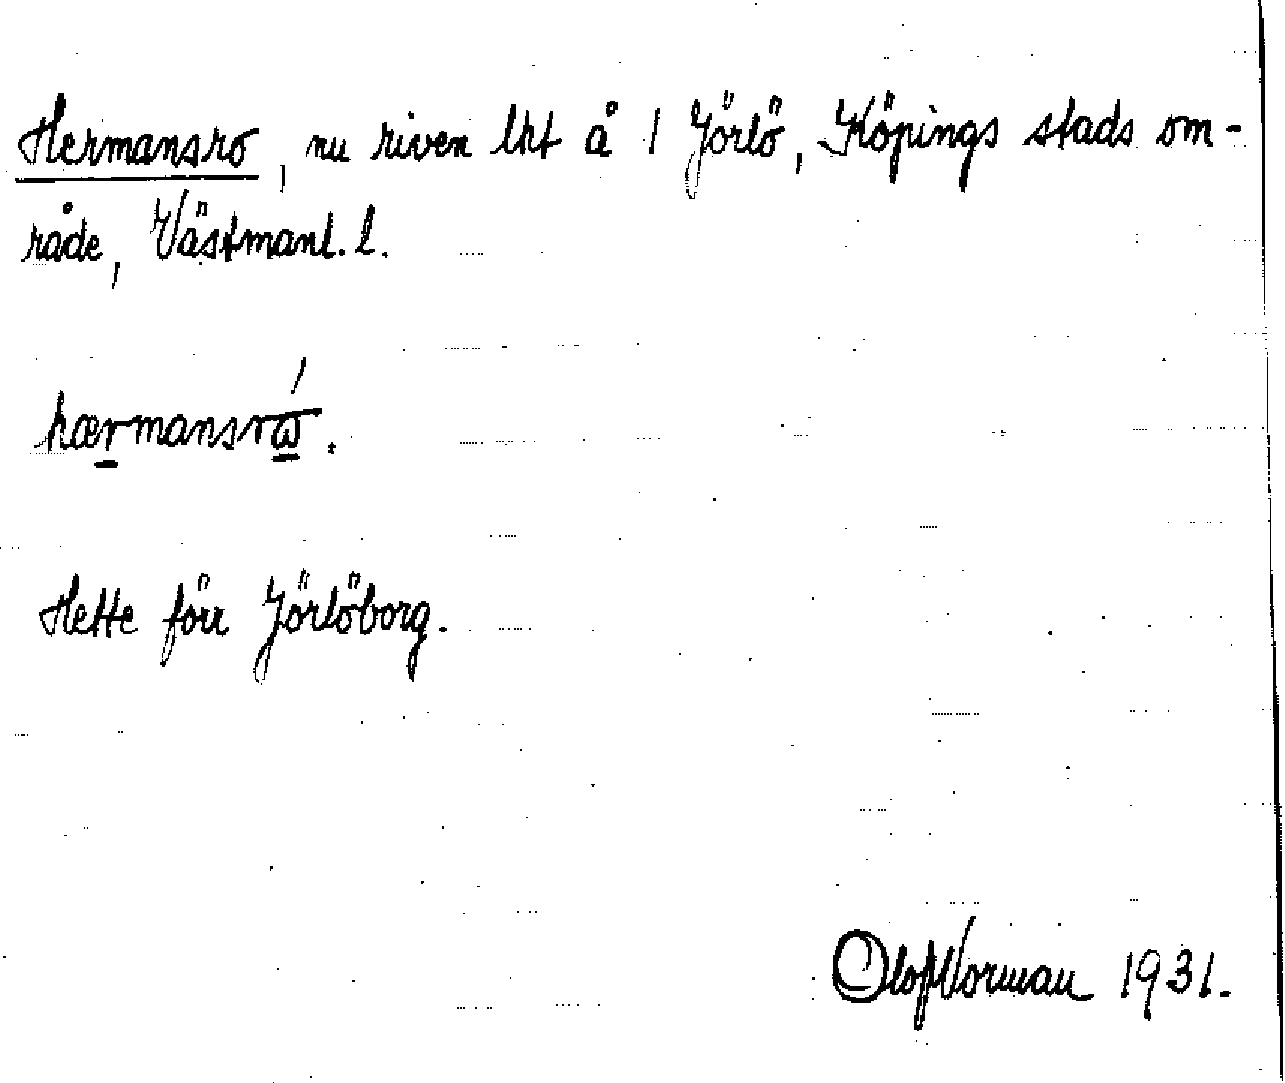 Hermansro, nu riven lht å 1 Jörlö, Köpings stads om-
råde, Västmanl. l.
hærmansrω̄́.
Hette förr Jörlöborg.
Olof Norman 1931.